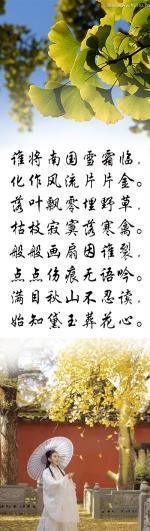 谁将南国雪霜临,
化作风流片片金。
落叶飘零埋野草,
枯枝寂寞落寒禽。
般般画扇因谁裂,
点点伤痕无语吟。
满目秋山不忍读,
始知黛玉葬花心。